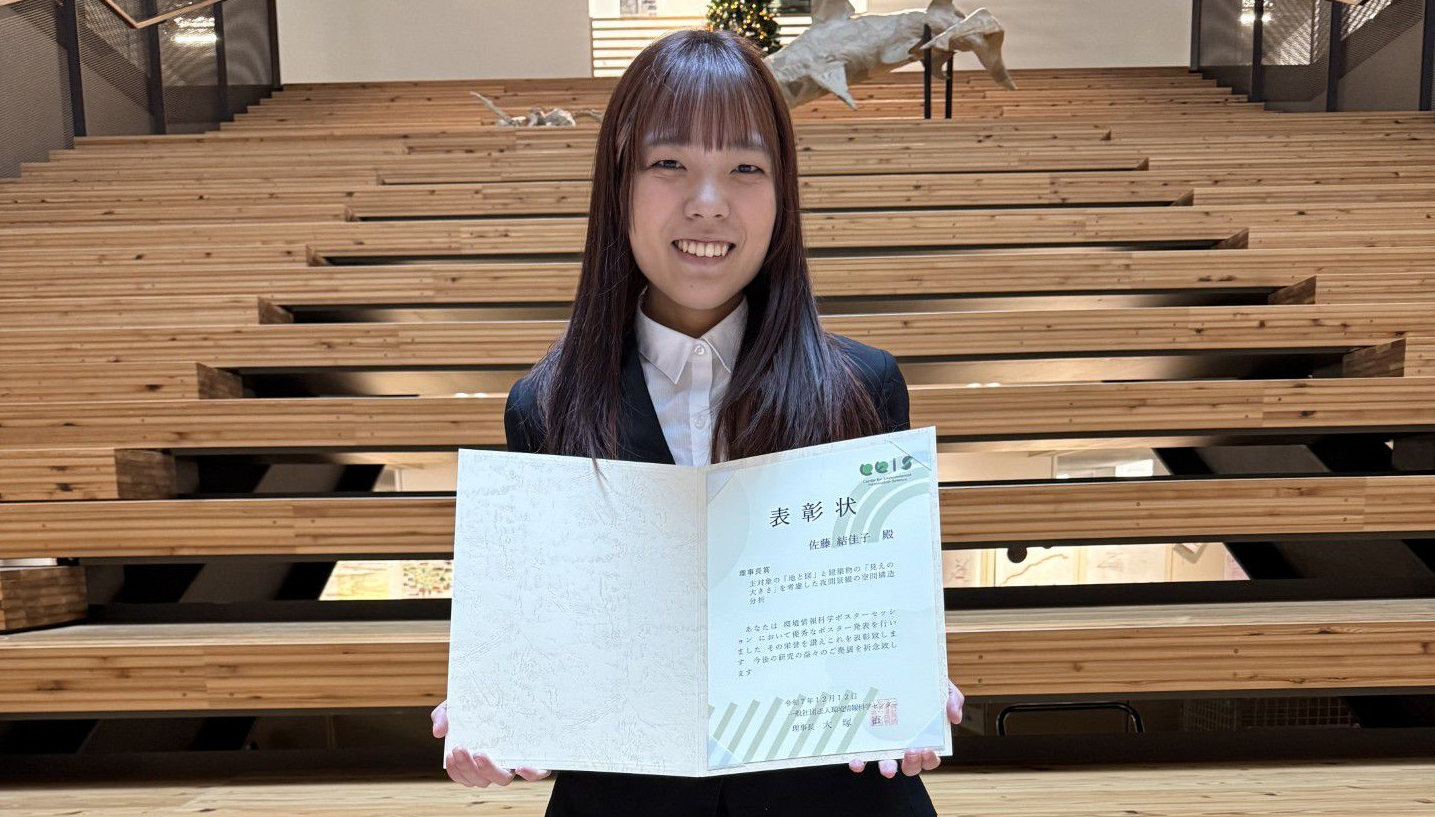 CEIS
Center for Environmental
Information Science
表彰状
佐藤 結佳子 殿
理事長賞
主対象の「地と図」と建築物の「見えの
大きさ」を考慮した夜間景観の空間構造
分析
あなたは 環境情報科学ポスターセッシ
ョン において優秀なポスター発表を行い
ました その栄誉を讃えこれを表彰致しま
す 今後の研究の益々のご発展を祈念致し
ます
令和7年12月12日
一般社団法人環境情報科学センター
理事長 大塚 直